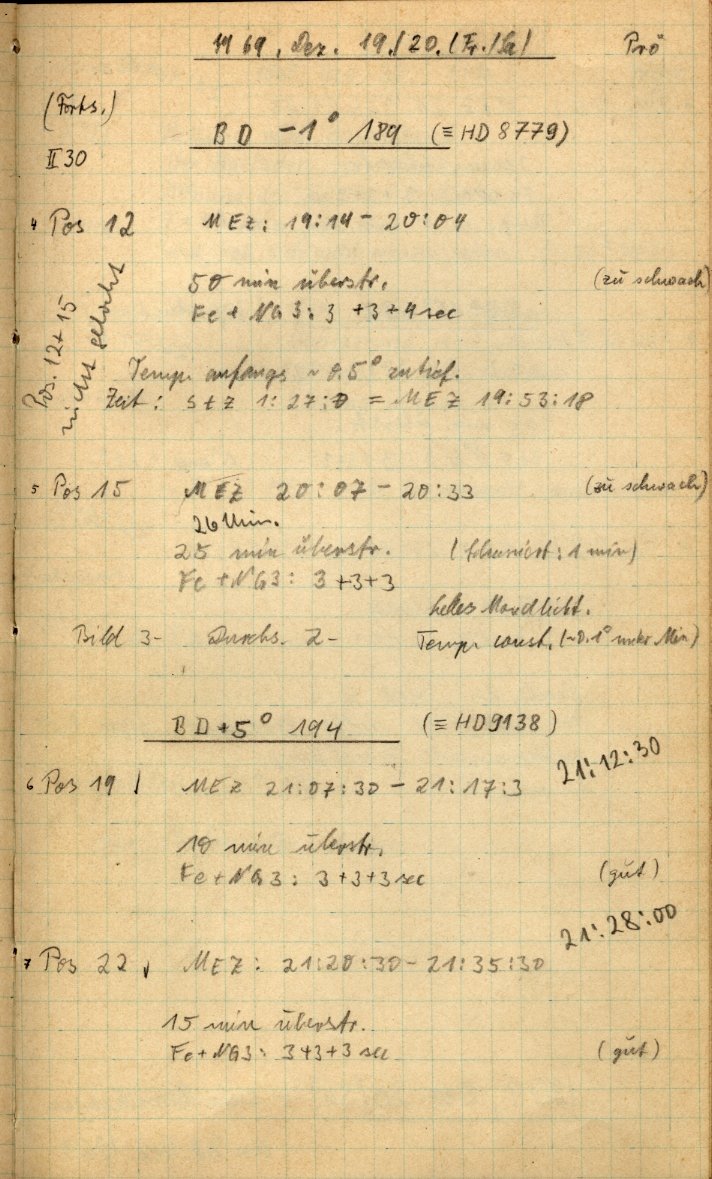 1969, Dez. 19./20. (Fr./Sa) Prö
(Forts.)
BD -1° 189 (≡ HD 8779)
II 30
4 Pos 12 MEZ: 19:14 - 20:04
50 min überstr. (zu schwach)
Fe + NG3: 3 +3+4 sec
Pos. 12+15
nicht gelocht
Temp. anfangs ~ 0.5° zu tief.
Zeit: StZ 1:27:0 = MEZ 19:53:18
5 Pos 15 MEZ 20:07 - 20:33 (zu schwach)
26 Min.
25 min überstr. : 1 min)
Fe + NG3: 3 +3+3
helles Mondlicht.
Bild 3- Durchs. 2- Temp. const. (~0.1° unter Min)
BD +5° 194 (≡ HD 9138)
21:12:30
6 Pos 19 MEZ 21:07:30 - 21:17:3
10 min überstr.
Fe + NG3: 3+3+3 sec (gut)
21:28:00
7 Pos 22 MEZ: 21:20:30 - 21:35:30
15 min überstr.
Fe + NG3: 3+3+3 sec (gut)